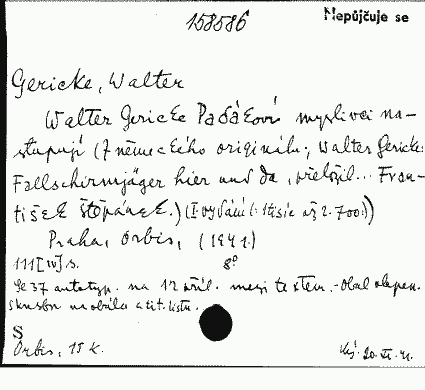 158586
Nepůjčuje se
Gericke, Walter
Walter Gericke Padákoví myslivci na-
stupují (Z německého originálu: Walter Gericke:
Fallschirmjäger hier und da, přeložil... Fran-
tišek Štěpánek.) (I. vydání 1. tisíc až 2.700.))
Praha, Orbis, (1941.)
111 [IV] s. 8°
Se 37 autotyp. na 12 příl. mezi textem. - Obal
skusbn na obálce a tit. listu.
S
Orbis, 15 K. 20. XI. 41.